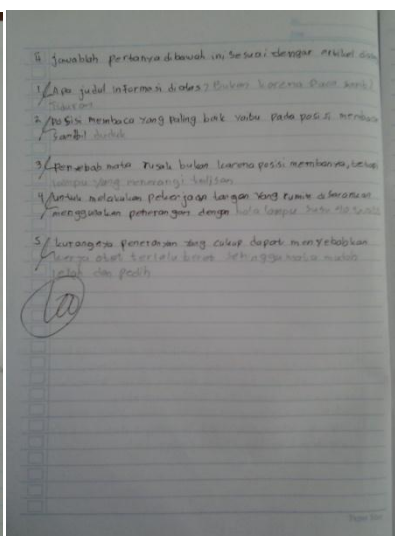 II jawablah pertanya dibawah ini sesuai dengan artikel
1. Apa judul informasi diatas? Bukan karena Baca sambil
Tiduran
2. posisi membaca yang paling baik yaitu pada posisi membaca
sambil duduk
3. Penyebab mata rusak bukan karena posisi membanva, tetapi
lampu yang menerangi tulisan
4. untuk melakukan pekerjaan tangan yang rumit disarankan
menggunakan peherangan dengan bola lampu
5. kurangnya penerangan yang cukup dapat menyebabkan
kerja otot terlalu berat sehingga mata mudah
lelah dan pedih
100